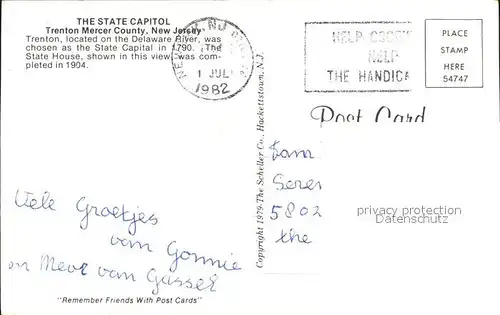 THE STATE CAPITOL
Trenton Mercer County, New Jersey
Trenton, located on the Delaware River, was
chosen as the State Capital in 1790. The
State House, shown in this view, was com-
pleted in 1904.
1 JUL
1982
HELP
THE HANDICA
PLACE
STAMP
HERE
54747
Post Card
Copyright 1979-The Scheller Co., Hackettstown, N.J.
Fam
5802
the
privacy protection
Datenschutz
Viele Groetjes
van Gonnie
en Meor van Gassel
"Remember Friends With Post Cards"